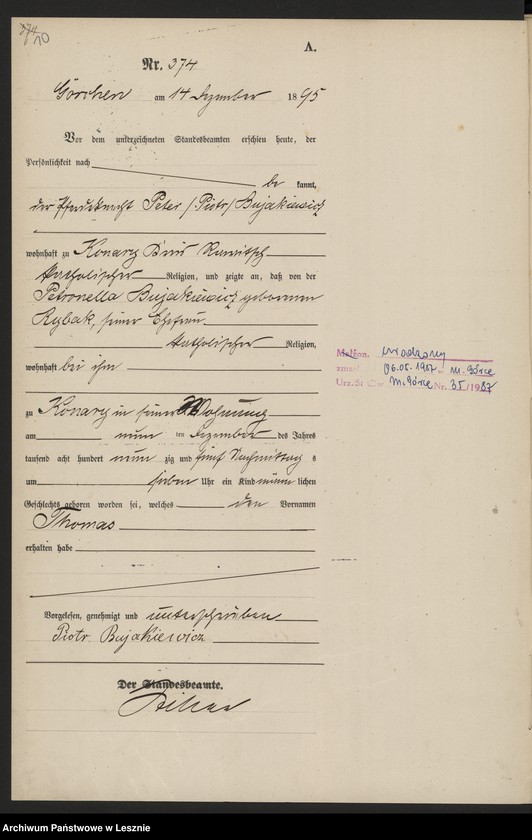 374
10
A.
Nr. 374
Görchen am 14 Dezember 1895
Vor dem unterzeichneten Standesbeamten erschien heute, der
Persönlichkeit nach
be kannt,
der Pferdeknecht Peter /Piotr/ Bujakiewicz
wohnhaft zu Konary Kreis Rawitsch
katholischer Religion, und zeigte an, daß von der
Petronella Bujakiewicz geborenen
Rybak, seiner Ehefrau
katholischer Religion,
wohnhaft bei ihm
zu Konary in seiner Wohnung
am neun ten Dezember des Jahres
tausend acht hundert neun zig und fünf Nachmittag s
um sieben Uhr ein Kind männ lichen
Geschlechts geboren worden sei, welches den Vornamen
Thomas
erhalten habe
Vorgelesen, genehmigt und unterschrieben
Piotr Bujakiewicz
Der Standesbeamte.
M. Górce
M. Górce Nr. 35/1987
Archiwum Państwowe w Lesznie